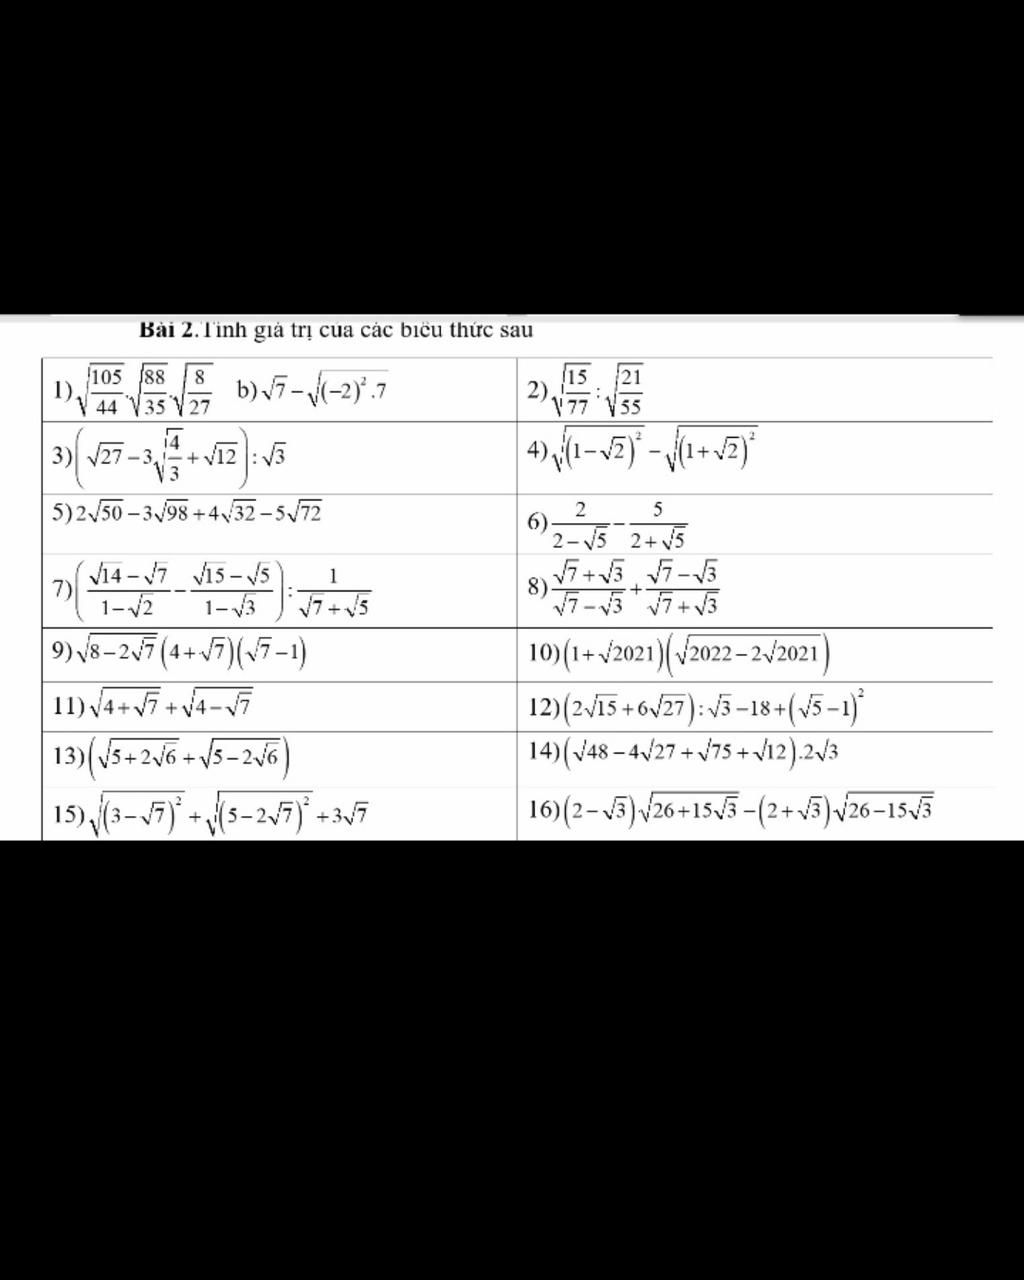 Bài 2.Tính giá trị của các biểu thức sau
1) √(105/44).√(88/35).√(8/27) b) √7 − √((−2)².7)
2) √(15/77) : √(21/55)
3) (√27 − 3√(4/3) + √12) : √3
4) √((1−√2)²) − √((1+√2)²)
5) 2√50 − 3√98 + 4√32 − 5√72
6) 2/(2−√5) − 5/(2+√5)
7) ((√14−√7)/(1−√2) − (√15−√5)/(1−√3)) : 1/(√7+√5)
8) (√7+√3)/(√7−√3) + (√7−√3)/(√7+√3)
9) √(8−2√7)(4+√7)(√7−1)
10) (1+√2021)(√(2022−2√2021))
11) √(4+√7) + √(4−√7)
12) (2√15+6√27) : √3 −18+(√5−1)²
13) (√(5+2√6) + √(5−2√6))
14) (√48 − 4√27 + √75 + √12).2√3
15) √((3−√7)²) + √((5−2√7)²) + 3√7
16) (2−√3)√(26+15√3) − (2+√3)√(26−15√3)